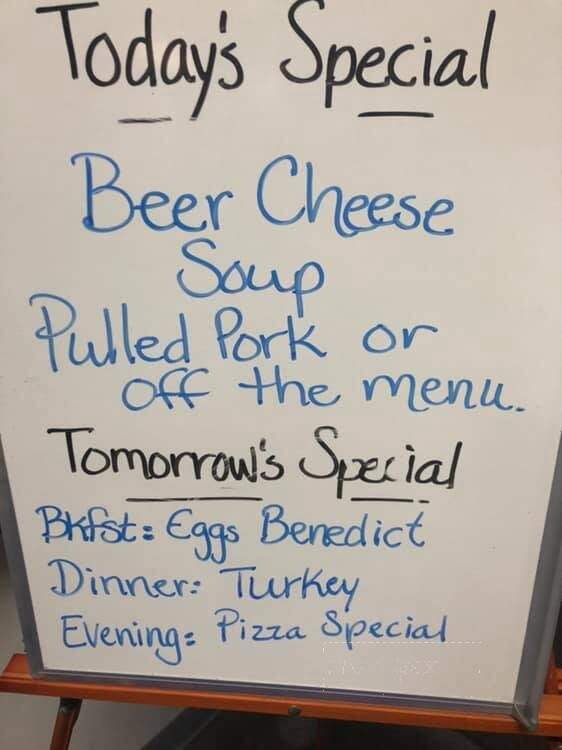 Today's Special
Beer Cheese
Soup
Pulled Pork or
off the menu.
Tomorrow's Special
Bkfst: Eggs Benedict
Dinner: Turkey
Evening: Pizza Special